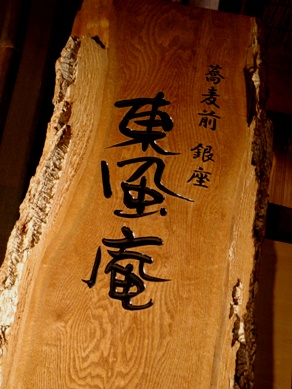 蕎麦前 銀座
東風庵